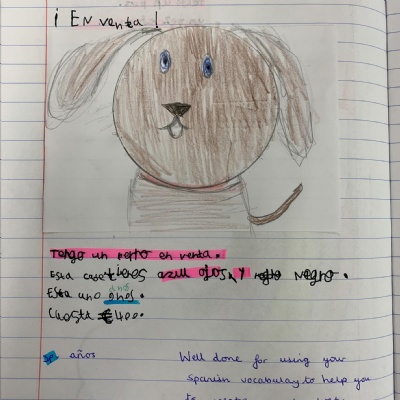 ¡ En venta !
Tengo un perro en venta.
Esta case tienes azul ojos, y negro.
Esta uno años.
Cuesta €400.
Sp años Well done for using your
Spanish vocabulary to help you